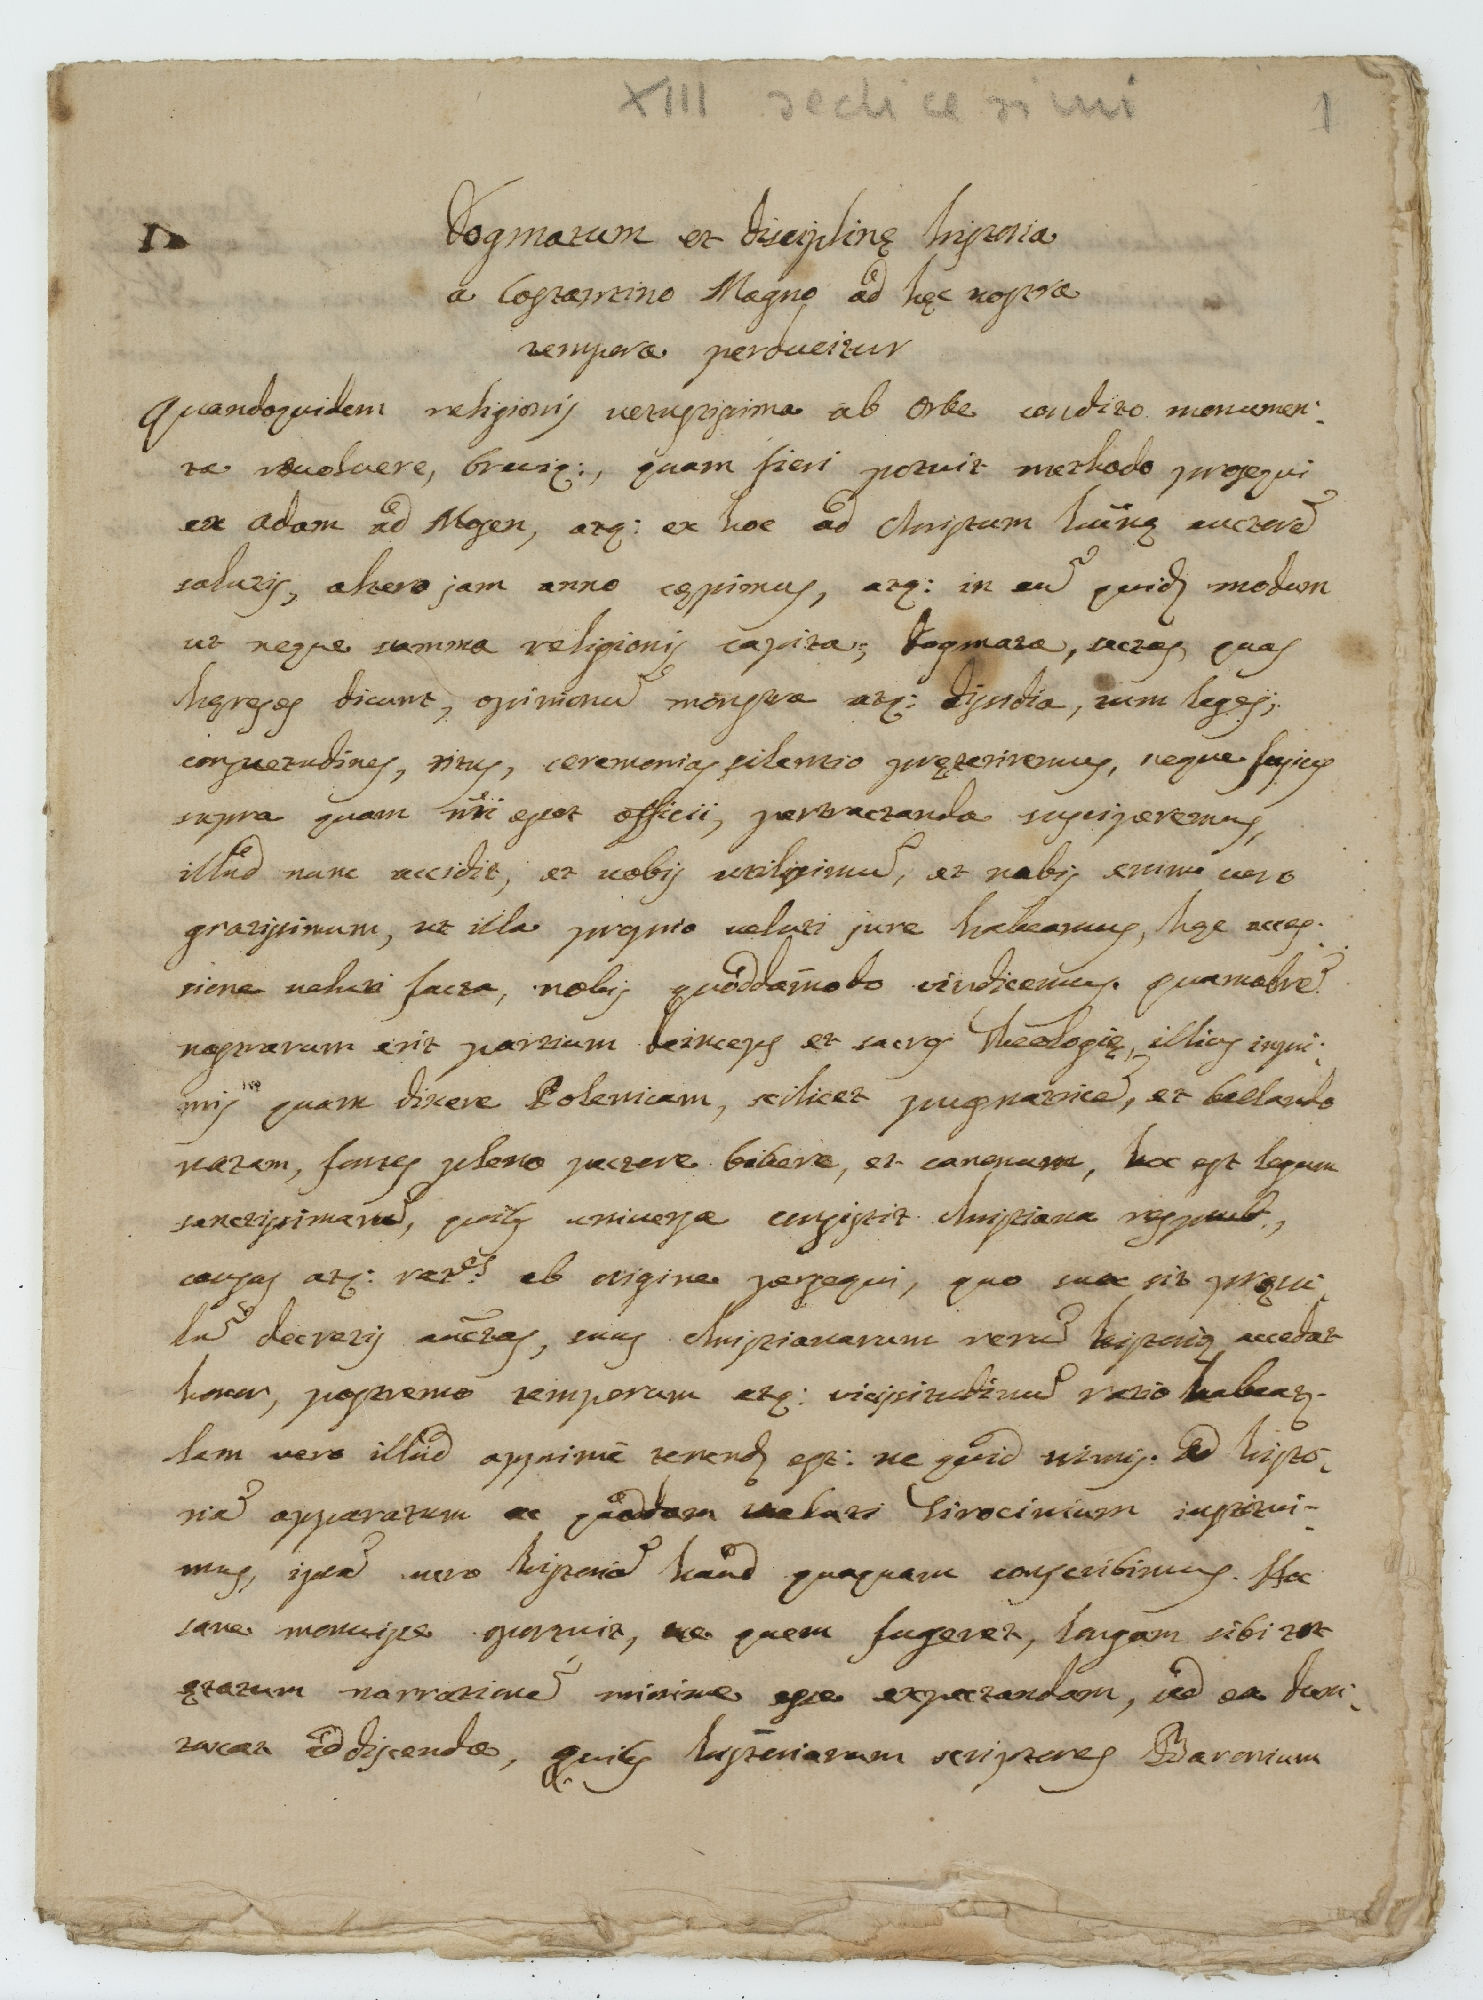 XIII sedicesimi 1
Dogmatum et disciplinę historia
a Costantino Magno ad hęc nostra
tempora perducitur
Quandoquidem religionis uetustissima ab Orbe condito monumen:
ta reuoluere, breuiq:, quam fieri potuit methodo prosequi
ex Adam ad Mosen, atq: ex hoc ad Christum humanę auctorẽ
salutis, altero jam anno cępimus, atq: in eũ quidẽ modum
ut neque summa religionis capita, dogmata, sectas, quas
hęreses dicunt, opinionũ monstra atq: dissidia, tum leges,
consuetudines, ritus, ceremonias silentio pręteriremus, neque fusius
supra quam nr̃i esset officii, pertractanda susciperemus,
illud nunc accidit, et uobis utilissimũ, et nobis enim uero
gratissimum, ut illa proprio ueluti jure habeamus, hęc acces:
sione ueluti facta, nobis quoddam̃odo vindicemus. quamobrẽ
nostrarum erit partium deinceps et sacrę Theologię, illius inpri:
mis quam dixere Polemicam, scilicet pugnatricẽ, et bellando
natam, fontes pleno pectore bibere, et canonum, hoc est legum
sanctissimarũ, quibus uniuersa consistit christiana respub.,
causas atq: rat.es ab origine persequi, quo sua sit pręsu:
lũ decretis auctas, suus christianarum rerũ historię accedat
honor, postremo temporum atq: vicissitudinũ ratio habeatᵣ.
Iam vero illud apprime tenendũ est: ne quid nimis. Ad histo:
riã apparatum ac quoddam ueluti tirocinium institui-
mus, ipsã uero historiã haud quaquam conscribimus. Hoc
sane monuisse oportuit, ne quem fugeret, longam sibi tot
ętatum narrationẽ minime esse expectandam, sed ea dum:
taxat addiscenda, quibus historiarum scriptores Baronium